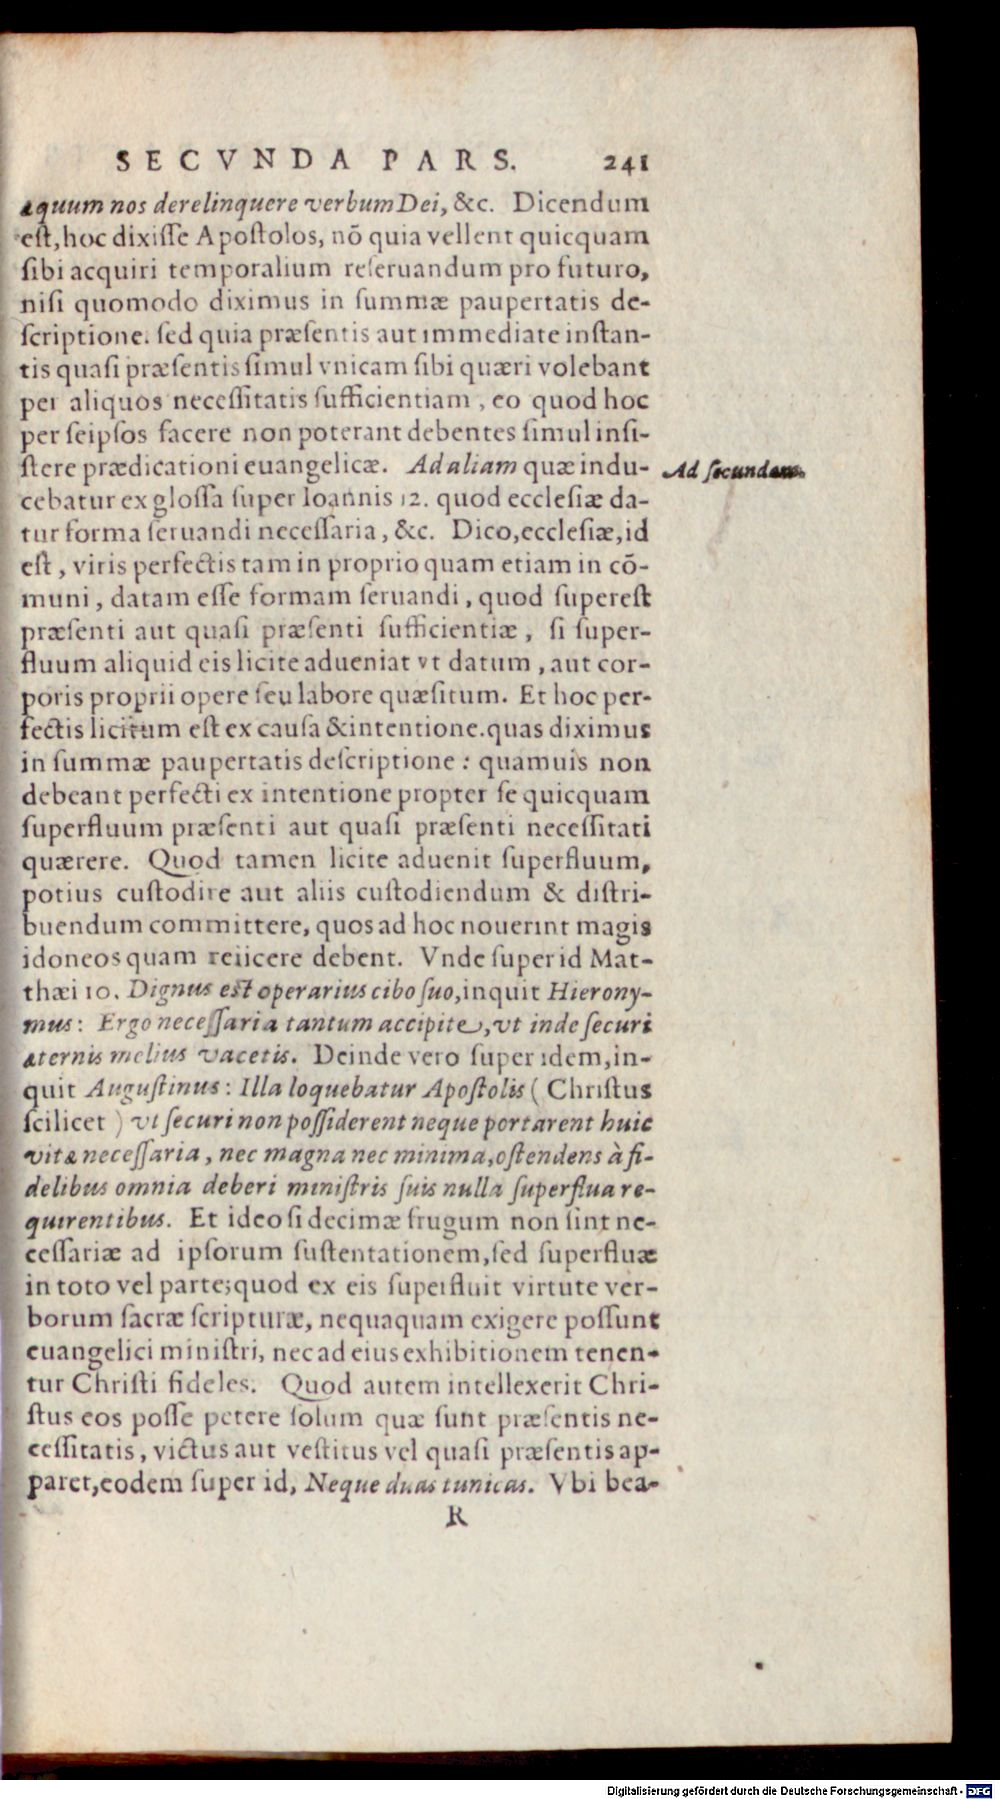 SECVNDA PARS. 241
æquum nos derelinquere verbum Dei, &c. Dicendum
est, hoc dixisse Apostolos, nõ quia vellent quicquam
sibi acquiri temporalium reseruandum pro futuro,
nisi quomodo diximus in summæ paupertatis de-
scriptione. sed quia præsentis aut immediate instan-
tis quasi præsentis simul vnicam sibi quæri volebant
per aliquos necessitatis sufficientiam, eo quod hoc
per seipsos facere non poterant debentes simul insi-
stere prædicationi euangelicæ. Ad aliam quæ indu-
Ad secundam.
cebatur ex glossa super Ioannis 12. quod ecclesiæ da-
tur forma seruandi necessaria, &c. Dico, ecclesiæ, id
est, viris perfectis tam in proprio quam etiam in cõ-
muni, datam esse formam seruandi, quod superest
præsenti aut quasi præsenti sufficientiæ, si super-
fluum aliquid eis licite adueniat vt datum, aut cor-
poris proprii opere seu labore quæsitum. Et hoc per-
fectis licitum est ex causa & intentione. quas diximus
in summæ paupertatis descriptione: quamuis non
debeant perfecti ex intentione propter se quicquam
superfluum præsenti aut quasi præsenti necessitati
quærere. Quod tamen licite aduenit superfluum,
potius custodire aut aliis custodiendum & distri-
buendum committere, quos ad hoc nouerint magis
idoneos quam reiicere debent. Vnde super id Mat-
thæi 10. Dignus est operarius cibo suo, inquit Hierony-
mus: Ergo necessaria tantum accipite, vt inde securi
æternis melius vacetis. Deinde vero super idem, in-
quit Augustinus: Illa loquebatur Apostolis (Christus
scilicet) vt securi non possiderent neque portarent huic
vitæ necessaria, nec magna nec minima, ostendens à fi-
delibus omnia deberi ministris suis nulla superflua re-
quirentibus. Et ideo si decimæ frugum non sint ne-
cessariæ ad ipsorum sustentationem, sed superfluæ
in toto vel parte; quod ex eis superfluit virtute ver-
borum sacræ scripturæ, nequaquam exigere possunt
euangelici ministri, nec ad eius exhibitionem tenen-
tur Christi fideles. Quod autem intellexerit Chri-
stus eos posse petere solum quæ sunt præsentis ne-
cessitatis, victus aut vestitus vel quasi præsentis ap-
paret, eodem super id, Neque duas tunicas. Vbi bea-
R
Digitalisierung gefördert durch die Deutsche Forschungsgemeinschaft - DFG